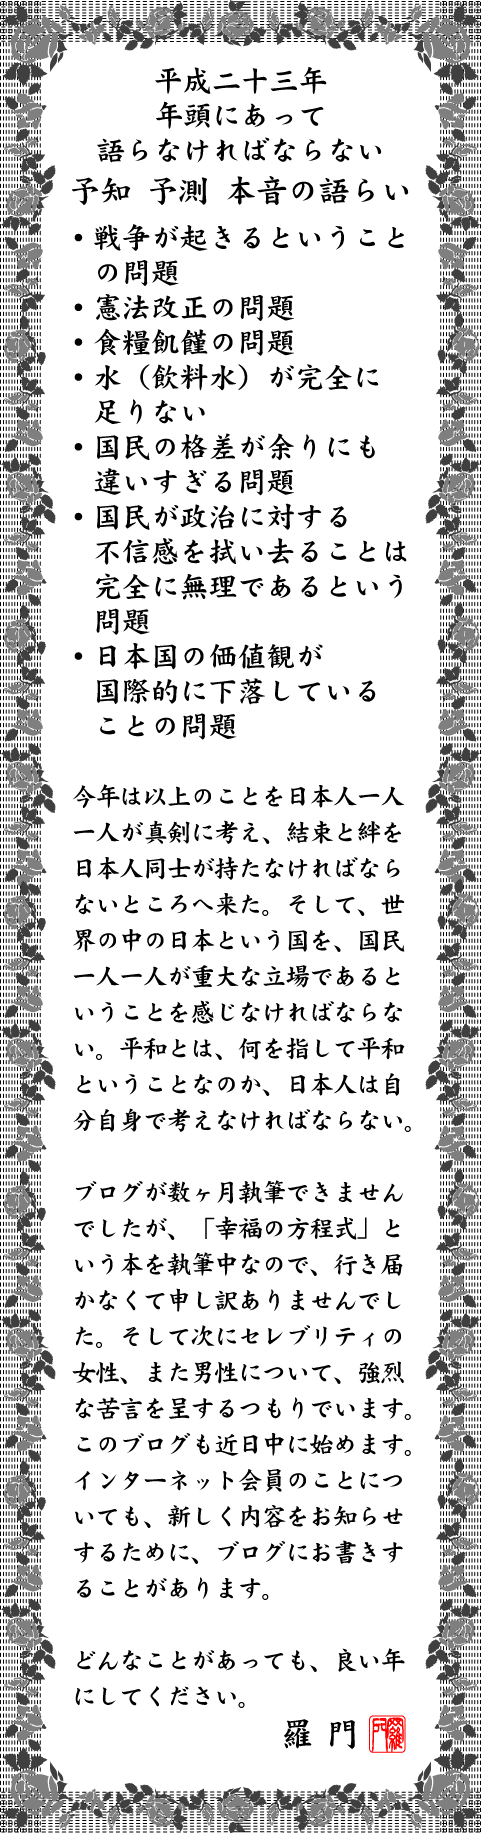 平成二十三年
年頭にあって
語らなければならない
予知 予測 本音の語らい
・戦争が起きるということ
の問題
・憲法改正の問題
・食糧飢饉の問題
・水（飲料水）が完全に
足りない
・国民の格差が余りにも
違いすぎる問題
・国民が政治に対する
不信感を拭い去ることは
完全に無理であるという
問題
・日本国の価値観が
国際的に下落している
ことの問題
今年は以上のことを日本人一人
一人が真剣に考え、結束と絆を
日本人同士が持たなければなら
ないところへ来た。そして、世
界の中の日本という国を、国民
一人一人が重大な立場であると
いうことを感じなければならな
い。平和とは、何を指して平和
ということなのか、日本人は自
分自身で考えなければならない。
ブログが数ヶ月執筆できません
でしたが、「幸福の方程式」と
いう本を執筆中なので、行き届
かなくて申し訳ありませんでし
た。そして次にセレブリティの
女性、また男性について、強烈
な苦言を呈するつもりでいます。
このブログも近日中に始めます。
インターネット会員のことにつ
いても、新しく内容をお知らせ
するために、ブログにお書きす
ることがあります。
どんなことがあっても、良い年
にしてください。
羅門 羅門